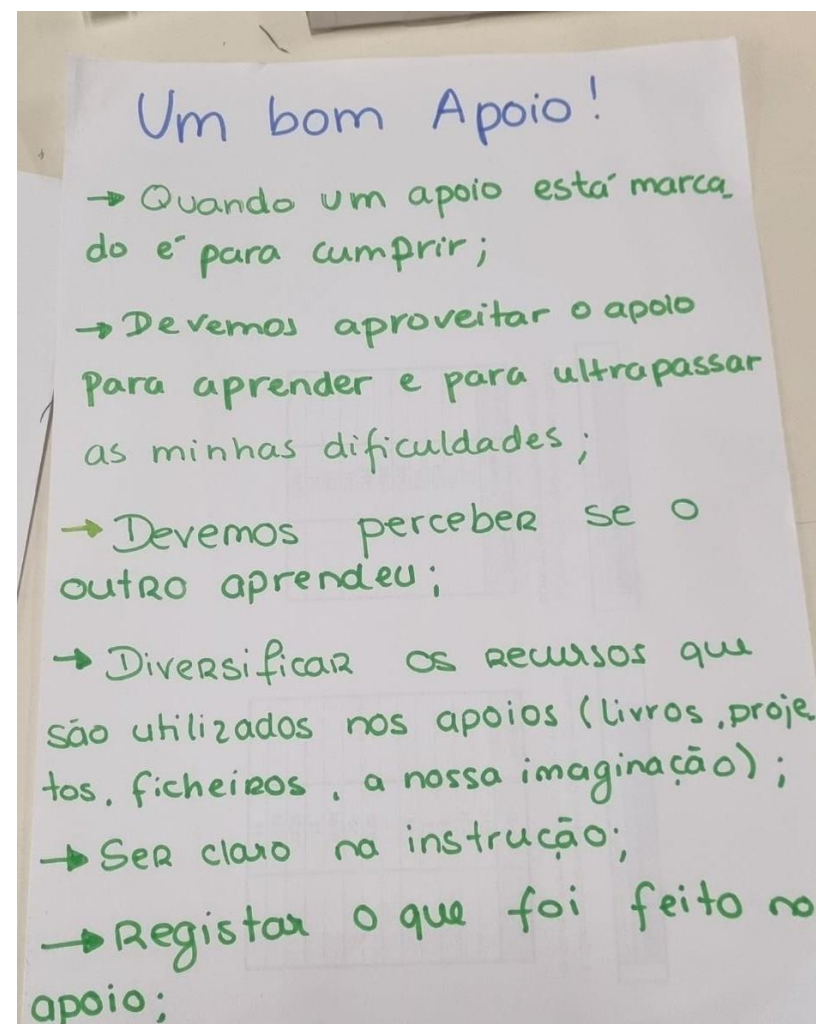 Um bom Apoio!
→ Quando um apoio está marca_
do é para cumprir;
→ Devemos aproveitar o apoio
para aprender e para ultrapassar
as minhas dificuldades;
→ Devemos perceber se o
outro aprendeu;
→ Diversificar os recursos que
são utilizados nos apoios (livros, proje_
tos, ficheiros, a nossa imaginação);
→ Ser claro na instrução;
→ Registar o que foi feito no
apoio;